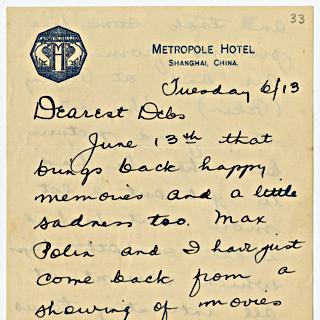 33
M
METROPOLE HOTEL
SHANGHAI, CHINA.
Tuesday 6/13
Dearest Debs
June 13th that
brings back happy
memories and a little
sadness too. Max
Polin and I have just
come back from a
showing of movies